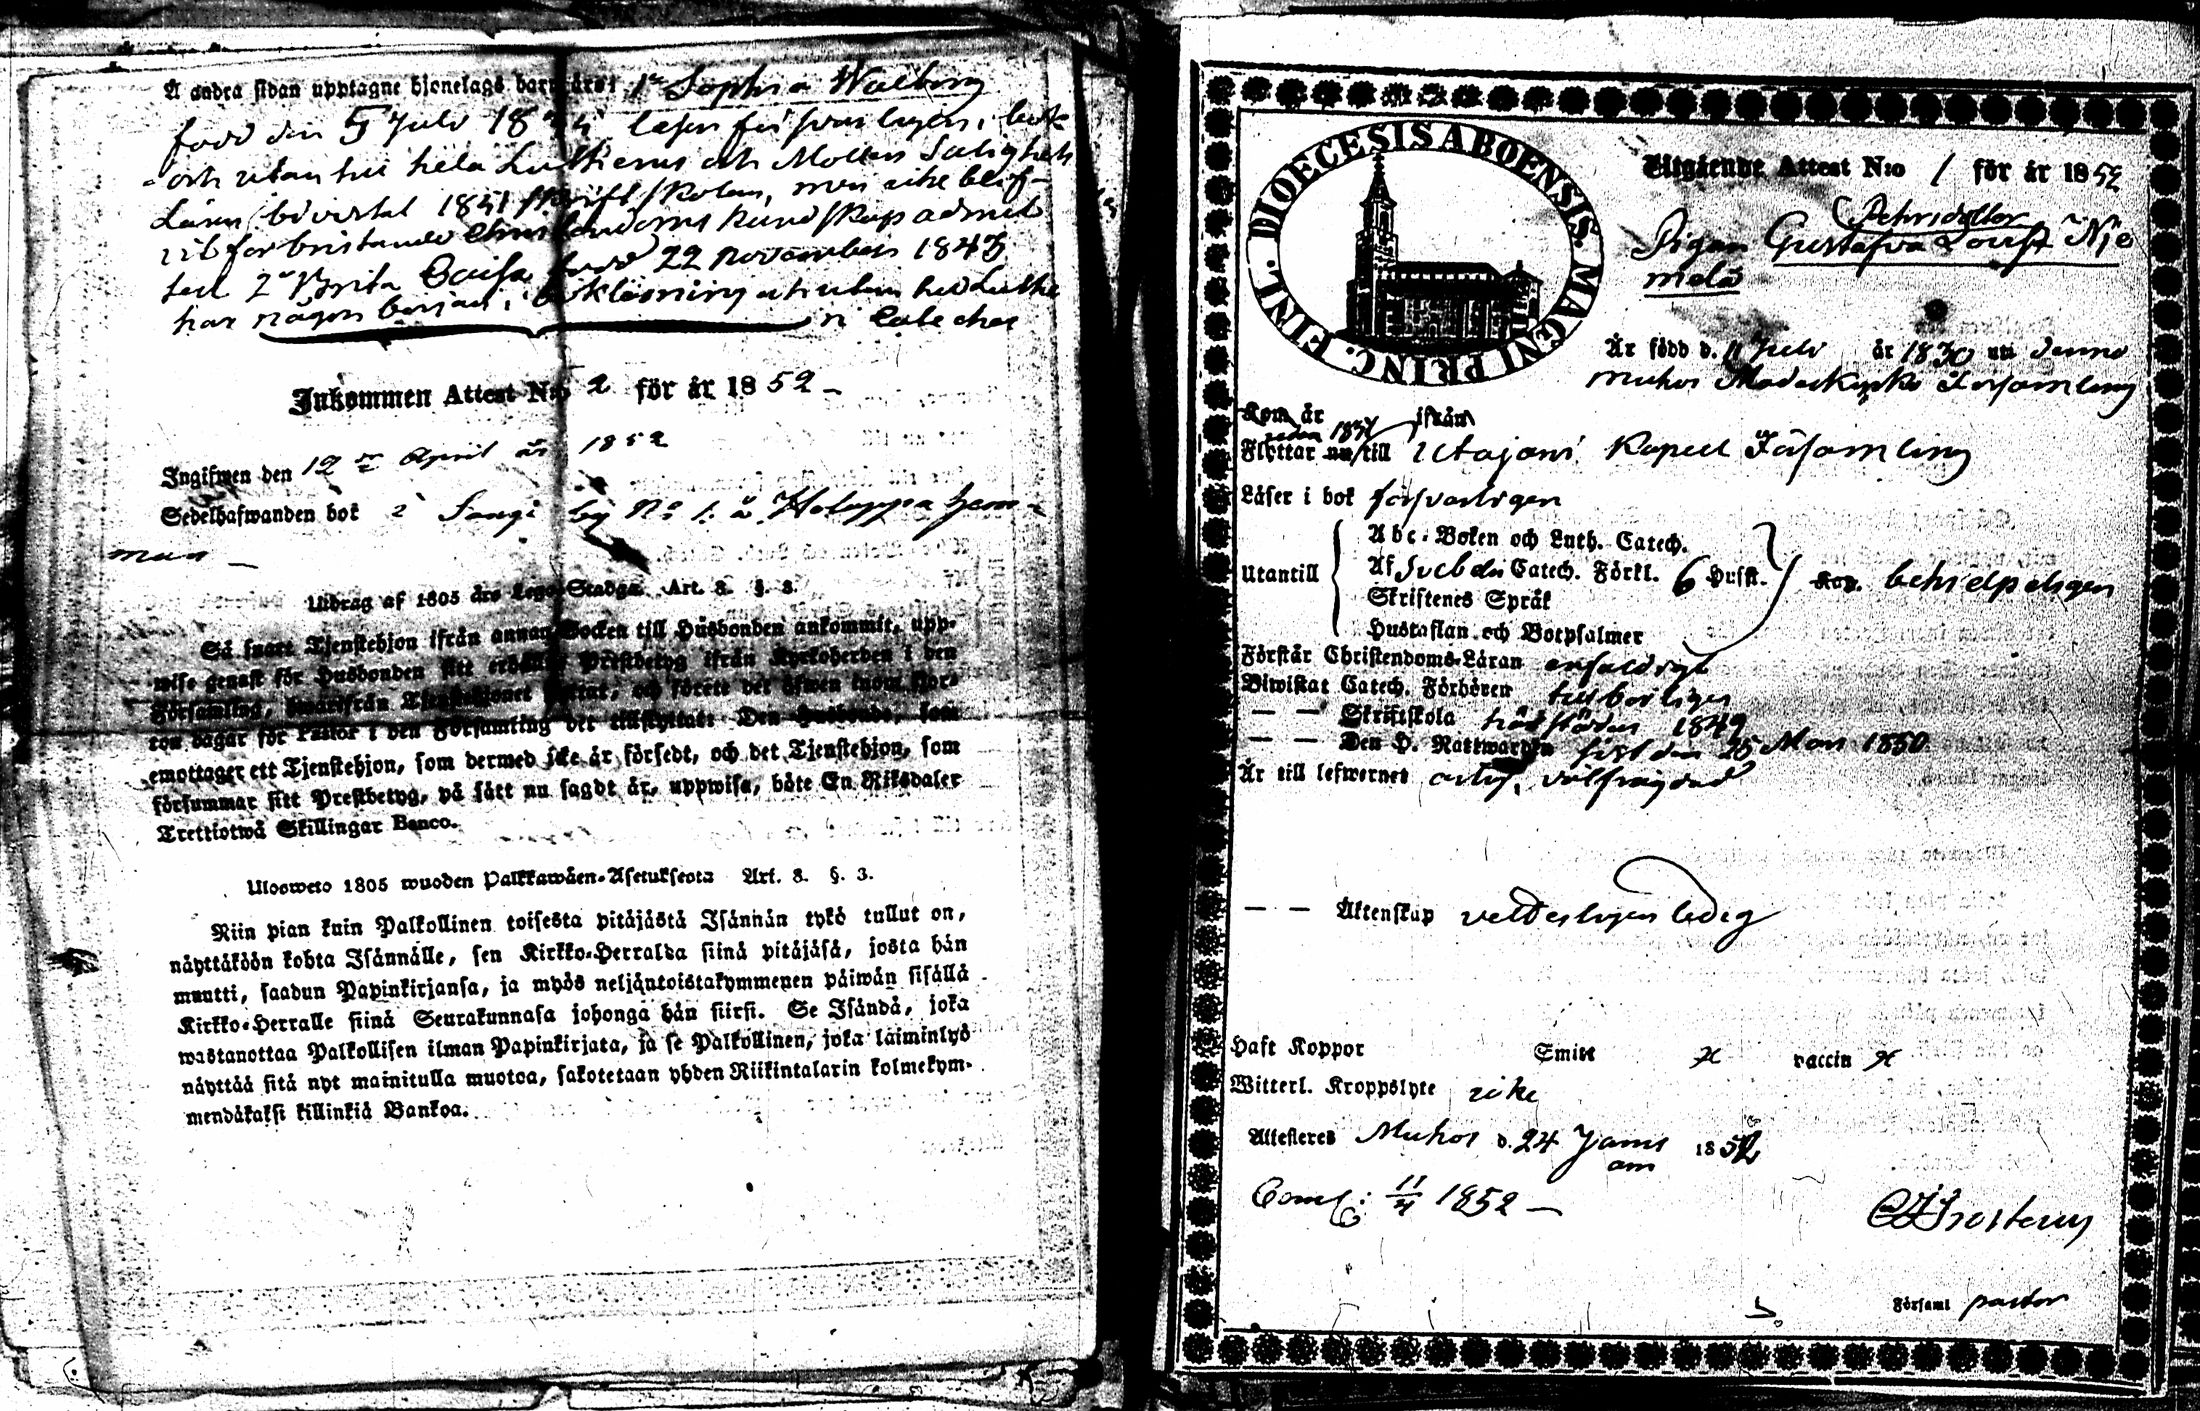 Å andra sidan upptagne hjonelags barn äro: 1o Sophia Walborg
född den 5 Juli 18 läser försvarligen i bok
och utan till hela Lutherus och Möllers Salighets
Lären, bivistat 1851 skriftskolan, men icke blif-
vit for bristande Christendoms kundskap admit
ted 2o Brita Caisa född 22 november 1843
har någon början i bokläsning och utan till Luthe
ri Cateches
Inkommen Attest N:o 2 för år 1852 –
Ingifwen den 12 April år 1852
Sedelhafwanden bor i Sangi by No 1. å Holappa hem-
man –
Utdrag af 1805 års Lego-Stadga. Art. 8. §. 3.
Så snart Tjenstehjon ifrån annan Socken till Husbonden ankommit, upp-
wise genast för Husbonden sitt erhållna Prestbetyg ifrån Kyrkoherden i den
Församling, hwarifrån Tjenstehjonet flyttat, och förete det äfwen inom fjor-
ton dagar för Pastor i den Församling det tillflyttat: Den Husbonde, som
emottager ett Tjenstehjon, som dermed icke är försedt, och det Tjenstehjon, som
försummar sitt Prestbetyg, på sätt nu sagdt är, uppwisa, böte En Riksdaler
Trettiotwå Skillingar Banco.
Ulosweto 1805 wuoden Palkkawäen-Asetuksesta Art. 8. §. 3.
Niin pian kuin Palkollinen toisesta pitäjästä Isännän tykö tullut on,
näyttäköön kohta Isännälle, sen Kirkko-Herralda siinä pitäjäsä, josta hän
muutti, saadun Papinkirjansa, ja myös neljäntoistakymmenen päiwän sisällä
Kirkko-Herralle siinä Seurakunnasa johonga hän siirsi. Se Isändä, joka
wastanottaa Palkollisen ilman Papinkirjata, ja se Palkollinen, joka laiminlyö
näyttää sitä nyt mainitulla muotoa, sakotetaan yhden Riikintalarin kolmekym-
mendäkaksi killinkiä Bankoa.
DIOECESIS ABOENSIS. MAGNI PRINC. FINL.
Utgående Attest N:o 1 för år 1852
(Pehrsdotter
Pigan Gustafva Lovisa Nie
melä
Är född d. 11 Juli år 1830 uti denna
Muhos Moderkyrko Församling
Kom år ifrån
sedan 1851
Flyttar nu till Utajärvi Kapell Församling
Läser i bok försvarligen
Utantill
Abc-Boken och Luth. Catech.
Af Svebelii Catech. Förkl. 6 Hufst. Kap. behielpeligen
Skriftenes Språk
Hustaflan och Botpsalmer
Förstår Christendoms-Läran enfaldigt
Biwistat Catech. Förhören tillbörligen
— — Skriftskola härstädes 1849
— — Den H. Nattwarden sist den 25 Mars 1850
Är till lefwernet ärlig, välfrägdad
— — Äktenskap veterligen ledig
Haft Koppor Smitt x vaccin x
Witterl. Kroppslyte icke
Attesteres Muhos d. 24 Janu 1852
Coml: 11/4 1852 —
Frosterus
Församl pastor